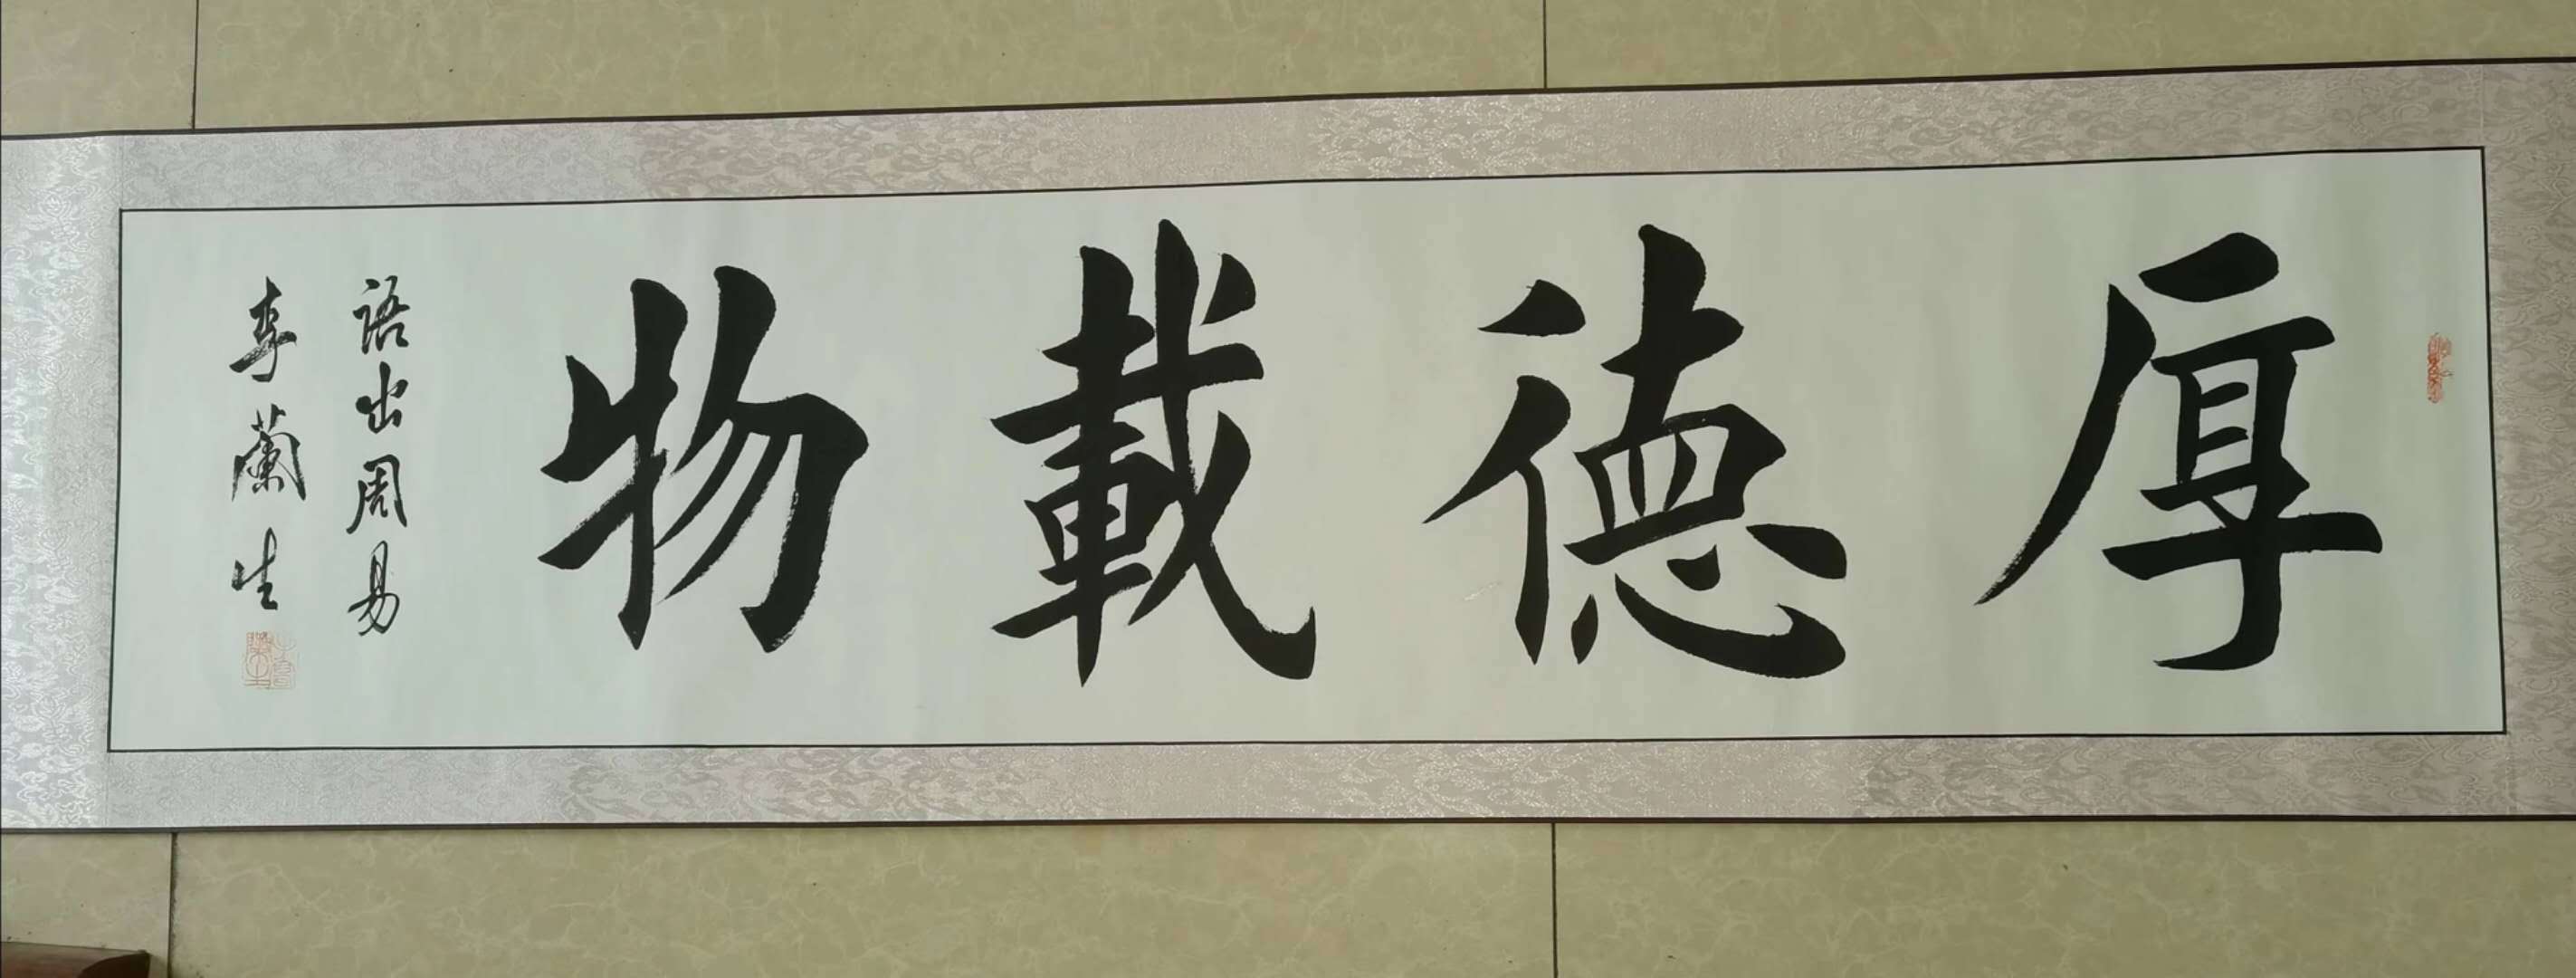 厚德載物
語出周易
李蘭生